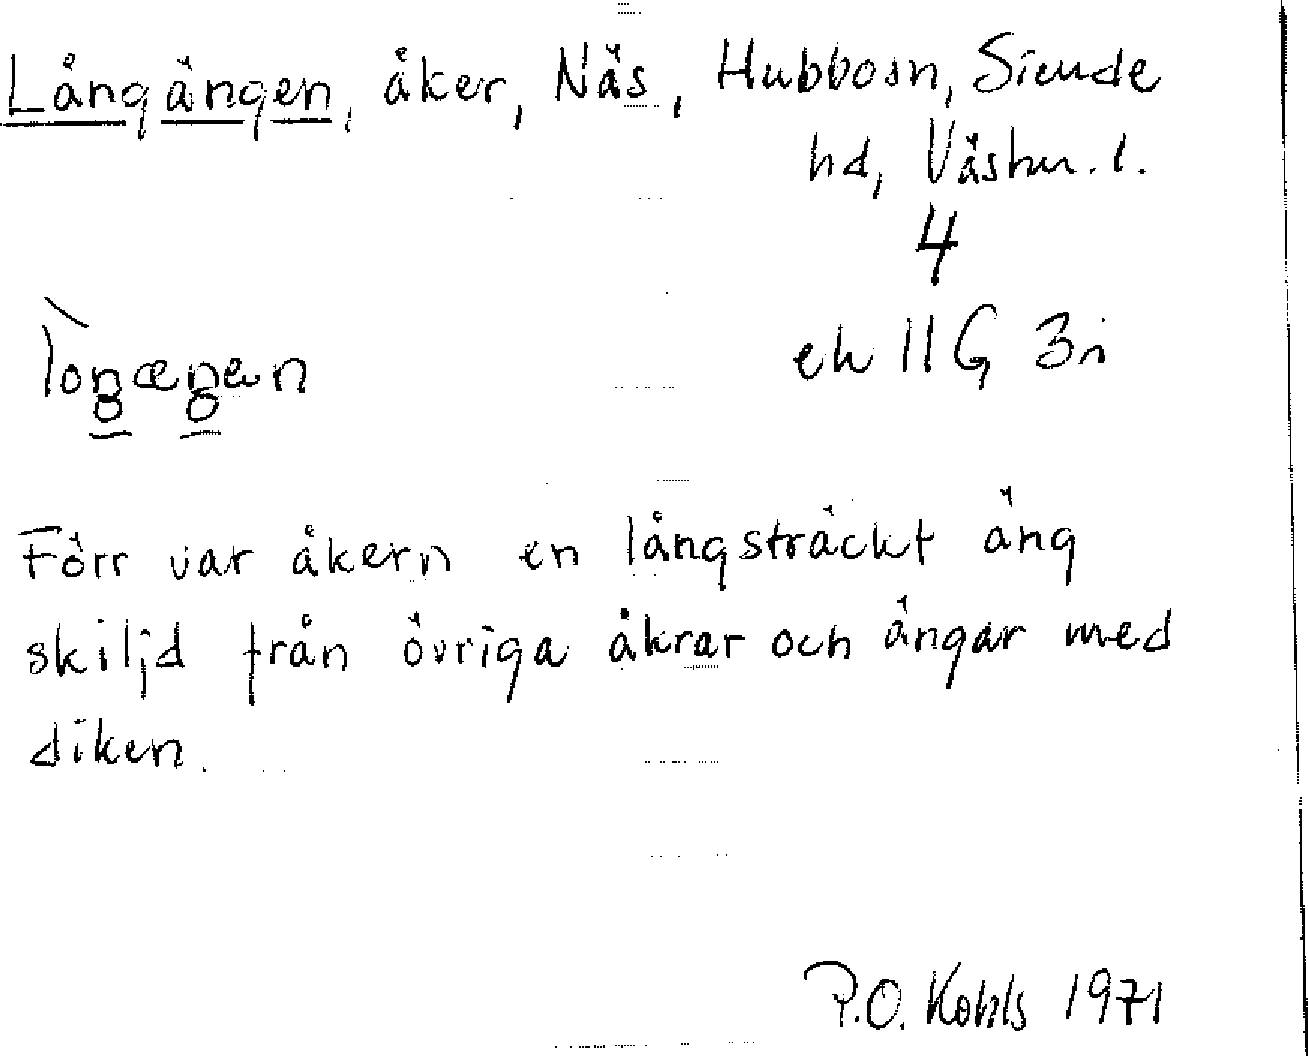 Långängen, åker, Näs, Hubbosn, Siende
hd, Västm. l.
4
ek 11G 3i
Förr var åkern en långsträckt äng
skiljd från övriga åkrar och ängar med
diken.
P.O. Kohls 1971